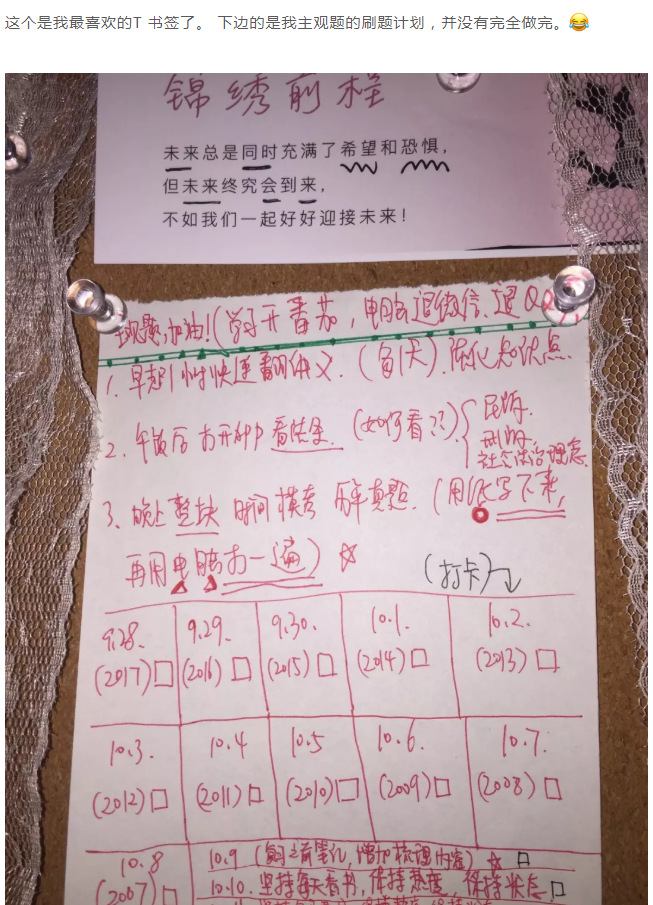 这个是我最喜欢的T 书签了。 下边的是我主观题的刷题计划，并没有完全做完。😂
锦绣前程
未来总是同时充满了希望和恐惧，
但未来终究会到来，
不如我们一起好好迎接未来！
主观题,加油!(学习开番茄，电脑退微信、退QQ)
1. 早起1小时快速翻讲义.（每1天）.陈化知识点.
2. 午饭后 方开钟 看法条.（如何看??）
民诉.
刑诉.
社会法治理念.
3、晚上 整块 时间 模考 历年真题.（用纸写下来，
再用电脑打一遍）☆
（打卡）
9.28. 9.29. 9.30. 10.1. 10.2.
(2017)□ (2016)□ (2015)□ (2014)□ (2013)□
10.3. 10.4 10.5 10.6. 10.7.
(2012)□ (2011)□ (2010)□ (2009)□ (2008)□
10.8 10.9（复习之前笔记，增加梳理内容）☆ □
(2007)□ 10.10. 坚持每天看书，保持热度，保持状态 □